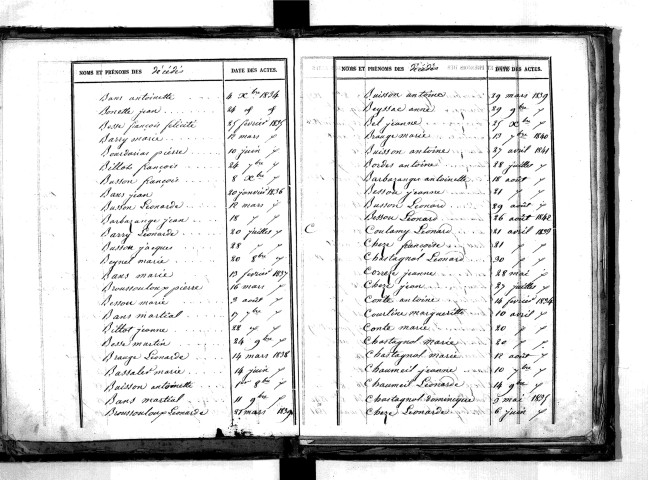 NOMS ET PRÉNOMS DES Décédés DATE DES ACTES.
Bans antoinette 4 Xbre 1834
Bonette jean 24 d° d°
Bosse françois félicité 25 février 1835
Barry marie 12 mars 〃
Bourdarias pierre 10 juin 〃
Billot françois 24 7bre 〃
Busson françois 8 Xbre 〃
Bans jean 20 janvier 1836
Busson Léonarde 12 mars 〃
Barbazange jean 18 〃 〃
Barry Léonarde 20 juillet 〃
Busson jacques 28 〃 〃
Beynet marie 20 8bre 〃
Bans marie 13 février 1837
Broussouloux pierre 16 mars 〃
Besson marie 9 août 〃
Bans martial 17 7bre 〃
Billot jeanne 22 〃 〃
Bosse martin 24 9bre 〃
Brauge Léonarde 14 mars 1838
Bassaler marie 14 juin 〃
Buisson antoinette 1er 8bre 〃
Bans martial 11 9bre 〃
Broussouloux Léonarde 21 mars 1839
NOMS ET PRÉNOMS DES Décédés DATE DES ACTES.
Buisson antoine 29 mars 1839
Beyssac anne 29 9bre 〃
Bel jeanne 25 Xbre 〃
Brauge marie 13 7bre 1840
Buisson antoine 27 avril 1841
Bordes antoine 28 juillet 〃
Barbazange antoinette 18 août 〃
Besson jeanne 21 〃 〃
Busson Léonard 29 août 〃
Besson Léonard 26 août 1842
C Coulamy Léonard 21 avril 1833
Chèze françoise 21 〃 〃
Chastagnol Léonard 30 〃 〃
Correze jeanne 28 mai 〃
Chèze jean 27 juillet 〃
Conte antoine 14 février 1834
Courtine marguerite 10 avril 〃
Conte marie 20 〃 〃
Chastagnol marie 20 〃 〃
Chastagnol marie 12 août 〃
Chaumeil jeanne 10 7bre 〃
Chaumeil Léonarde 14 9bre 〃
Chastagnol Dominique 9 mai 1835
Chèze Léonarde 6 juin 〃